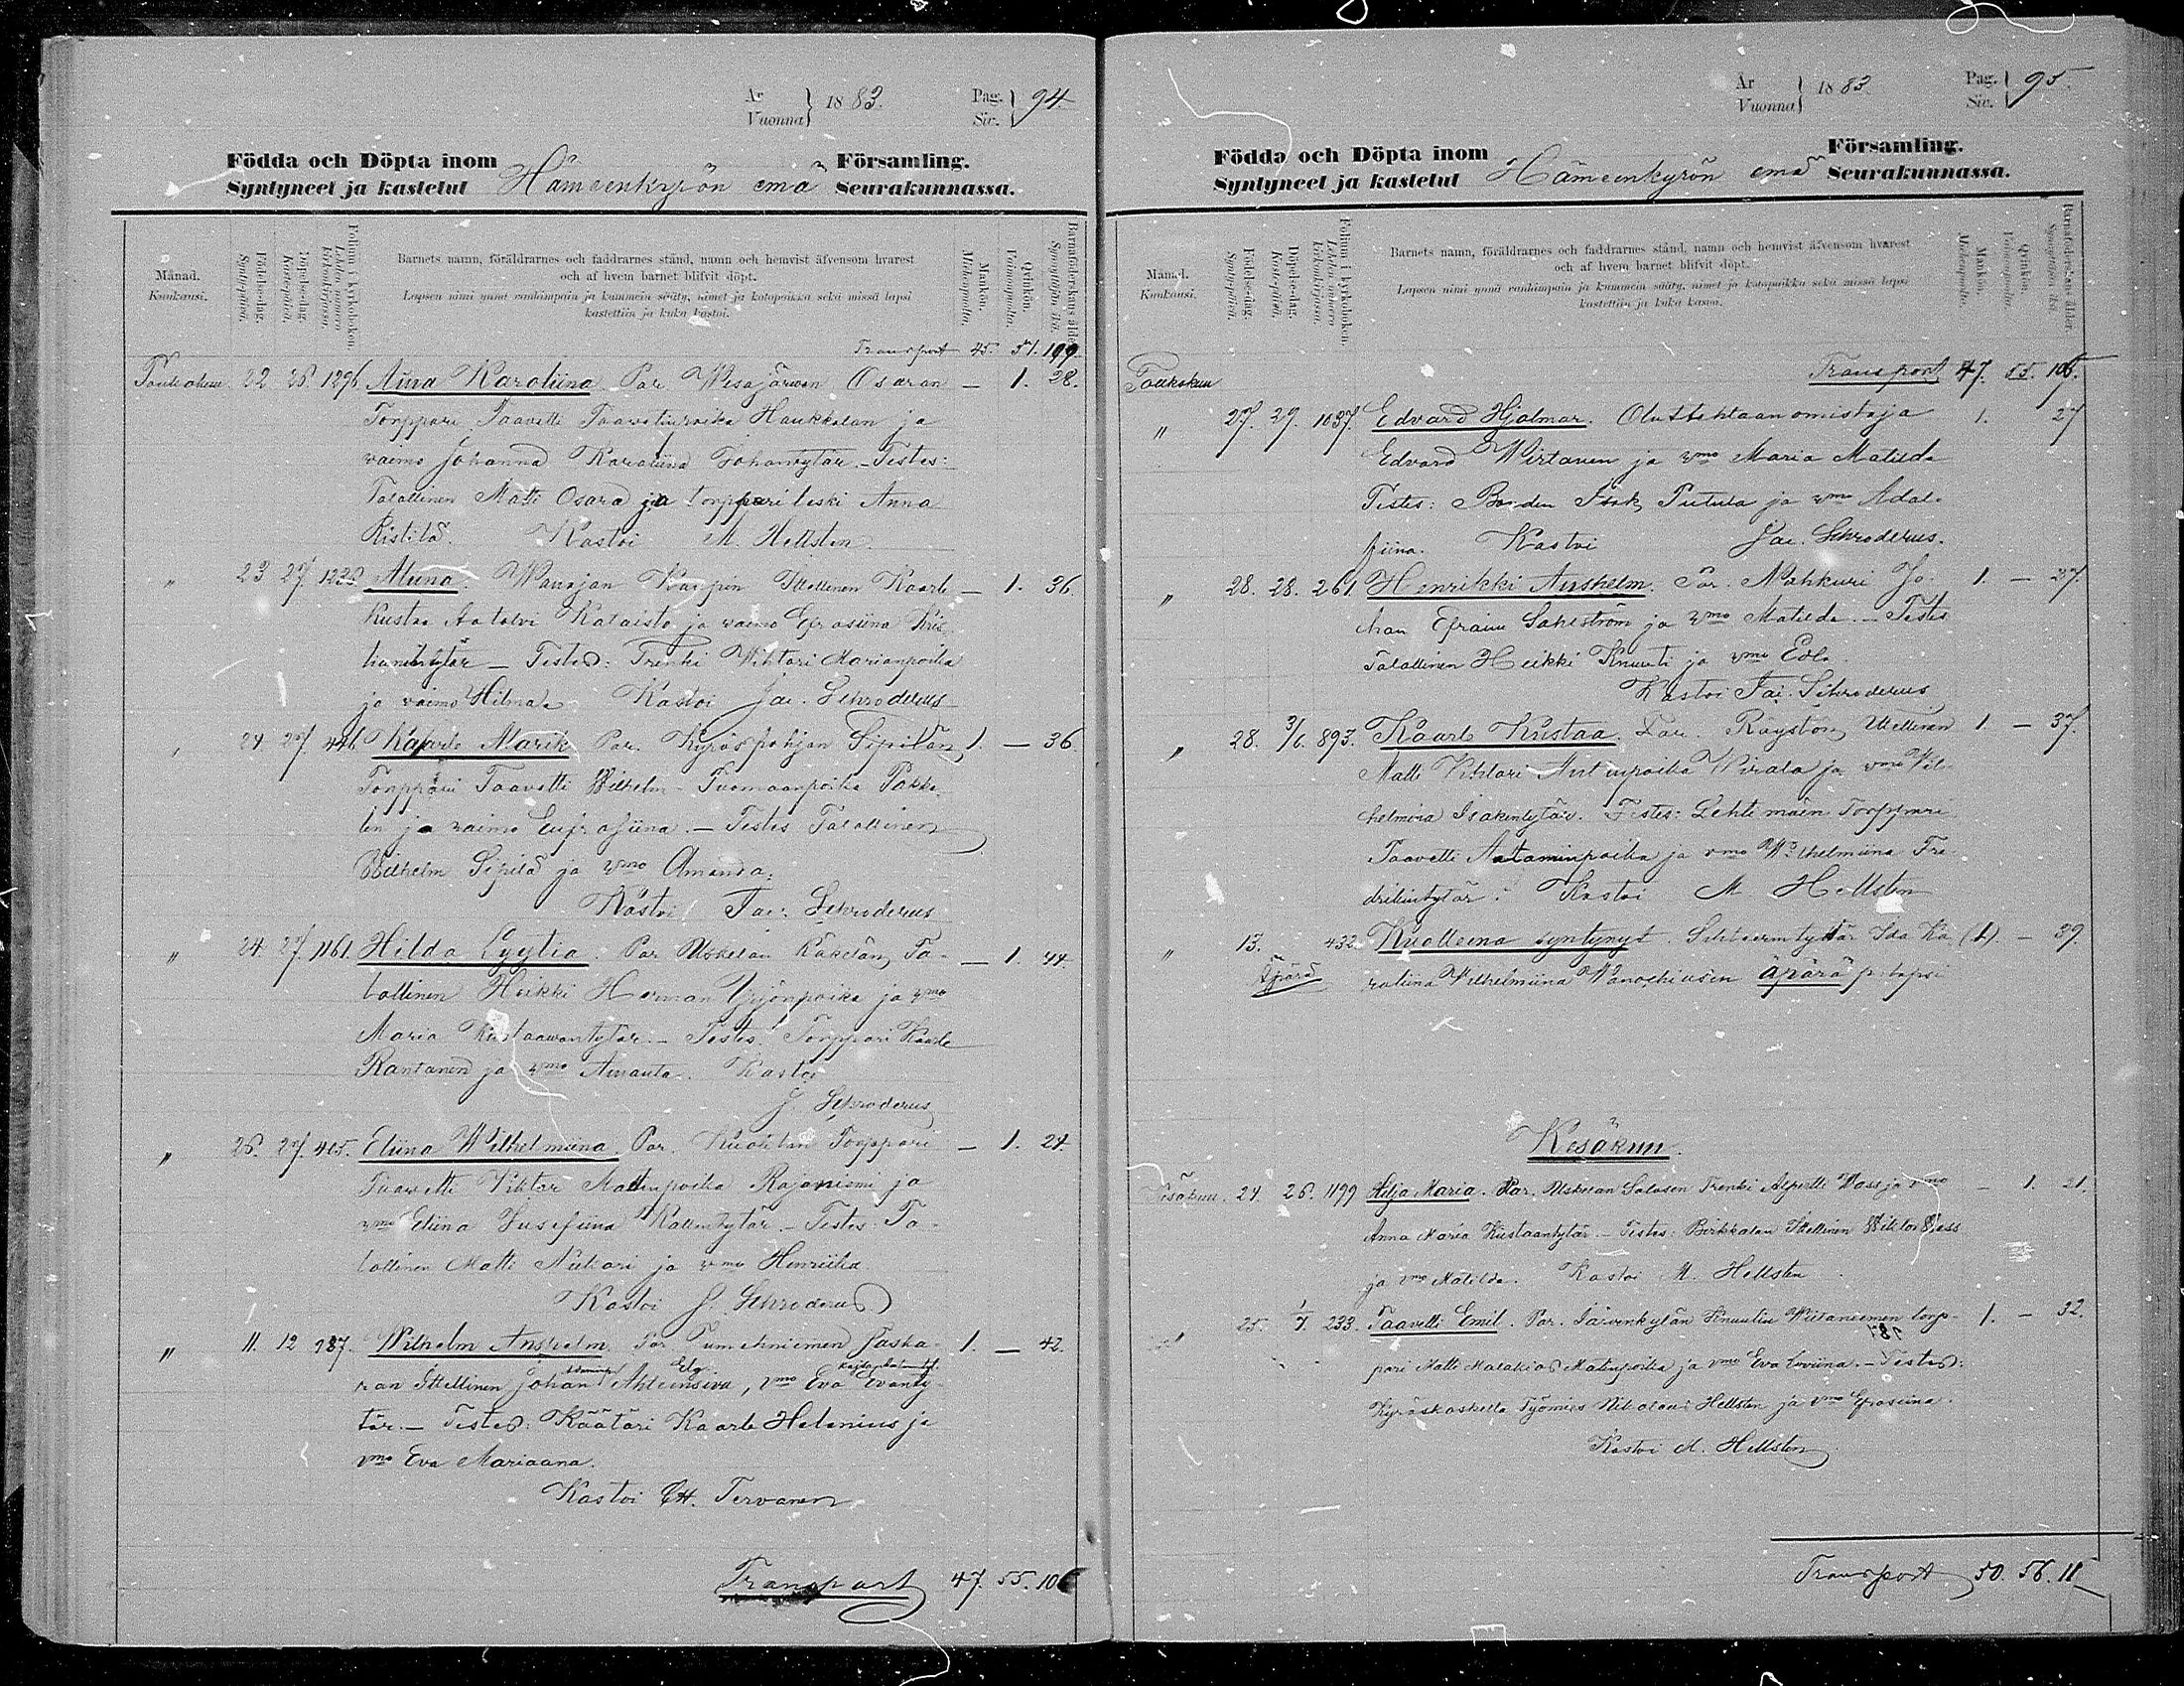 År
Vuonna } 1883. Pag.
Siv. } 94.
Födda och Döpta inom Hämeenkyrön emä Församling.
Syntyneet ja kastetut Seurakunnassa.
Månad.
Kuukausi.
Födelse-dag.
Syntypäivä.
Döpelse-dag.
Kastepäivä.
Folium i kyrkoboken.
Lehden numero kirkonkirjassa.
Barnets namn, föräldrarnes och faddrarnes stånd, namn och hemvist äfvensom hvarest
och af hvem barnet blifvit döpt.
Lapsen nimi ynnä vanhimpain ja kummein sääty, nimet ja kotopaikka sekä missä lapsi
kastettiin ja kuka kastoi.
Mankön.
Miehenpuolia.
Qvinkön.
Vaimonpuolia.
Barnaföderskans ålder.
Synnyttäjän ikä.
Transport 45. 51. 199
Toukokuu. 22 26. 1296 Aina Karoliina. Par. Wesajärven Osaran — 1. 28.
Torppari Taavetti Taavetinpoika Haukkalan ja
vaimo Johanna Karoliina Johantytär. - Testes:
Talallinen Matti Osara ja torpparileski Anna
Ristilä. Kastoi M. Hellsten
" 23 27. Alina. Kaarle — 1. 36.
Kustaa ja vaimo Efrosiina Kris
tiantytär — Testes: Trenki Wihtori Marianpoika
ja vaimo Hilma. Kastoi Jac. Schroderus
" 24 27. 446. Kaarle Par. Kyröspohjan Sipilän 1. — 36.
Torppari Taavetti Wilhelm Tuomaanpoika
ja vaimo Eufrosiina. — Testes Talallinen
Wilhelm Sipilä ja vmo Amanda.
Kastoi Jac. Schroderus
" 24. 27. 1161. Hilda Lyytia. Par Uskelan Käkelän Ta- — 1. 44.
lallinen Heikki Herman Yrjönpoika ja vmo
Maria Kustaawantytär. - Testes: Torppari Kaarle
Rantanen ja vmo Amanta. Kastoi
J. Schroderus
" 26. 27. 405. Eliina Wilhelmiina. Par. Torppari — 1. 24.
Taavetti Viktor Matinpoika Rajaniemi ja
vmo Eliina Josefiina Kallentytär. - Testes: Ta-
lallinen Matti ja vmo Henriika
Kastoi J. Schroderus
" 11. 12 987. Wilhelm Anshelm. Par Jaska- 1. — 42.
ran Ittellinen Johan Ahteensiva, vmo Eva
tär. — Testes: Räätäri Kaarle Helenius ja
vmo Eva Mariaana.
Kastoi Tervanen
Transport 47. 55. 106
År
Vuonna } 1883. Pag.
Siv. } 95.
Födda och Döpta inom Hämeenkyrön emä Församling.
Syntyneet ja kastetut Seurakunnassa.
Månad.
Kuukausi.
Födelse-dag.
Syntypäivä.
Döpelse-dag.
Kastepäivä.
Folium i kyrkoboken.
Lehden numero kirkonkirjassa.
Barnets namn, föräldrarnes och faddrarnes stånd, namn och hemvist äfvensom hvarest
och af hvem barnet blifvit döpt.
Lapsen nimi ynnä vanhimpain ja kummein sääty, nimet ja kotopaikka sekä missä lapsi
kastettiin ja kuka kastoi.
Mankön.
Miehenpuolia.
Qvinkön.
Vaimonpuolia.
Barnaföderskans ålder.
Synnyttäjän ikä.
Toukokuu Transport 47. 55. 106.
" 27. 29. 1037. Edvard Hjalmar. Oluttehtaanomistaja 1. 27
Edvard Wirtanen ja vmo Maria Matilda
Testes: Isak ja vmo Adol-
fiina. Kastoi Jac. Schroderus.
" 28. 28. 261. Henrikki Anshelm. Par. Mahkuri Jo- 1. — 37.
han Efraim Sahlström ja vmo Matilda. — Testes
Talallinen Heikki Knuuti ja vmo Edla.
Kastoi Jac. Schroderus
" 28. 3/6. 893. Kaarle Kustaa. Par. Röystön Ittellinen 1. — 37.
Matti Vihtori Antinpoika Wirala ja vmo Vil-
helmiina Isakintytär. Testes: Lehtimäen Torppari
Taavetti Aataminpoika ja vmo Wilhelmiina Fre-
drikintytär. Kastoi M. Hellsten
" 13. 432. Kuolleena syntynyt. Ida Ka- (1). — 39.
Äpärä roliina Wilhelmiina äpärä p. lapsi
Kesäkuu.
Kesäkuu. 24. 26. 1199 Hilja Maria. Par. Uskelan Salosen Trenki Alpertti Wass ja vmo — 1. 21.
Anna Maria Kustaantytär. — Testes: Ittellinen Wiktor Wass
ja vmo Matilda. Kastoi M. Hellsten
" 25. 1/7. 233. Taavetti Emil. Par. Järvenkylän Knuutin Wiitaniemen torp- 1. — 32.
pari Matti Malakias Matinpoika ja vmo Eva Loviina. — Testes:
Kyröskoskella Työmies Nikolaus Hellsten ja vmo Efrosiina.
Kastoi M. Hellsten
Transport 50. 56. 11